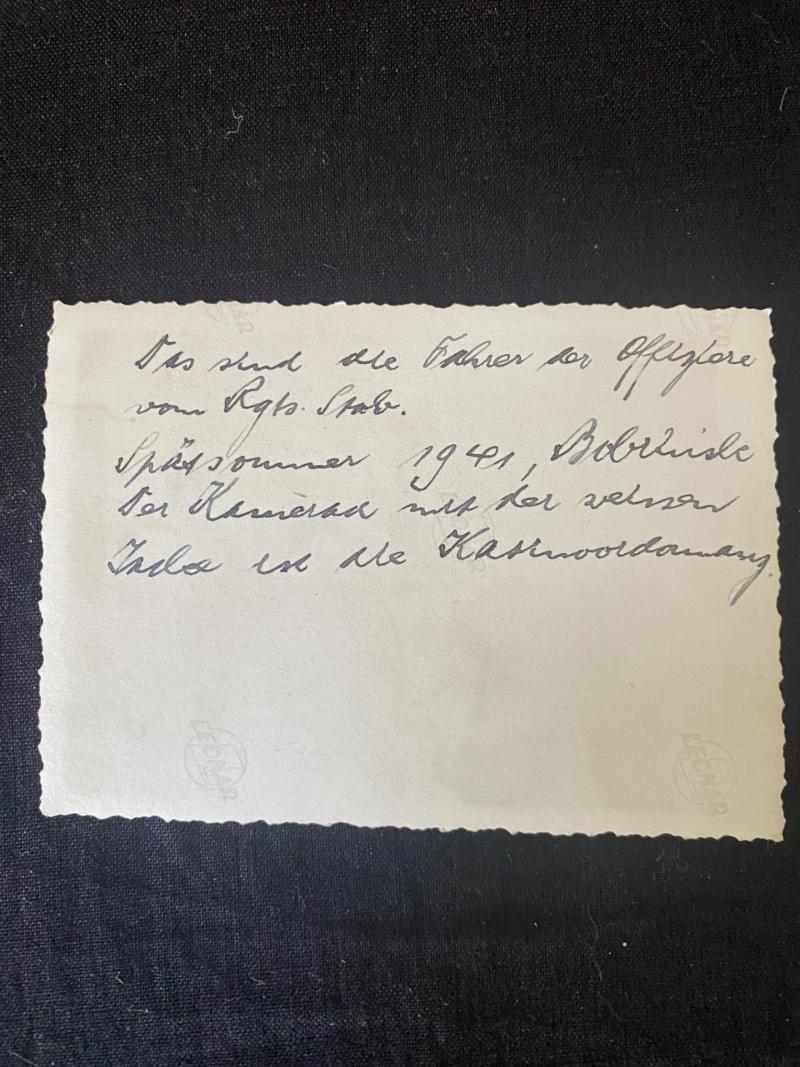 Das sind die Fahrer der Offiziere
vom Rgts. Stab.
Spätsommer 1941, Bobruisk
Der Kamerad mit der weissen
Jacke ist die Kasinoordonnanz.
LEONAR
LEONAR